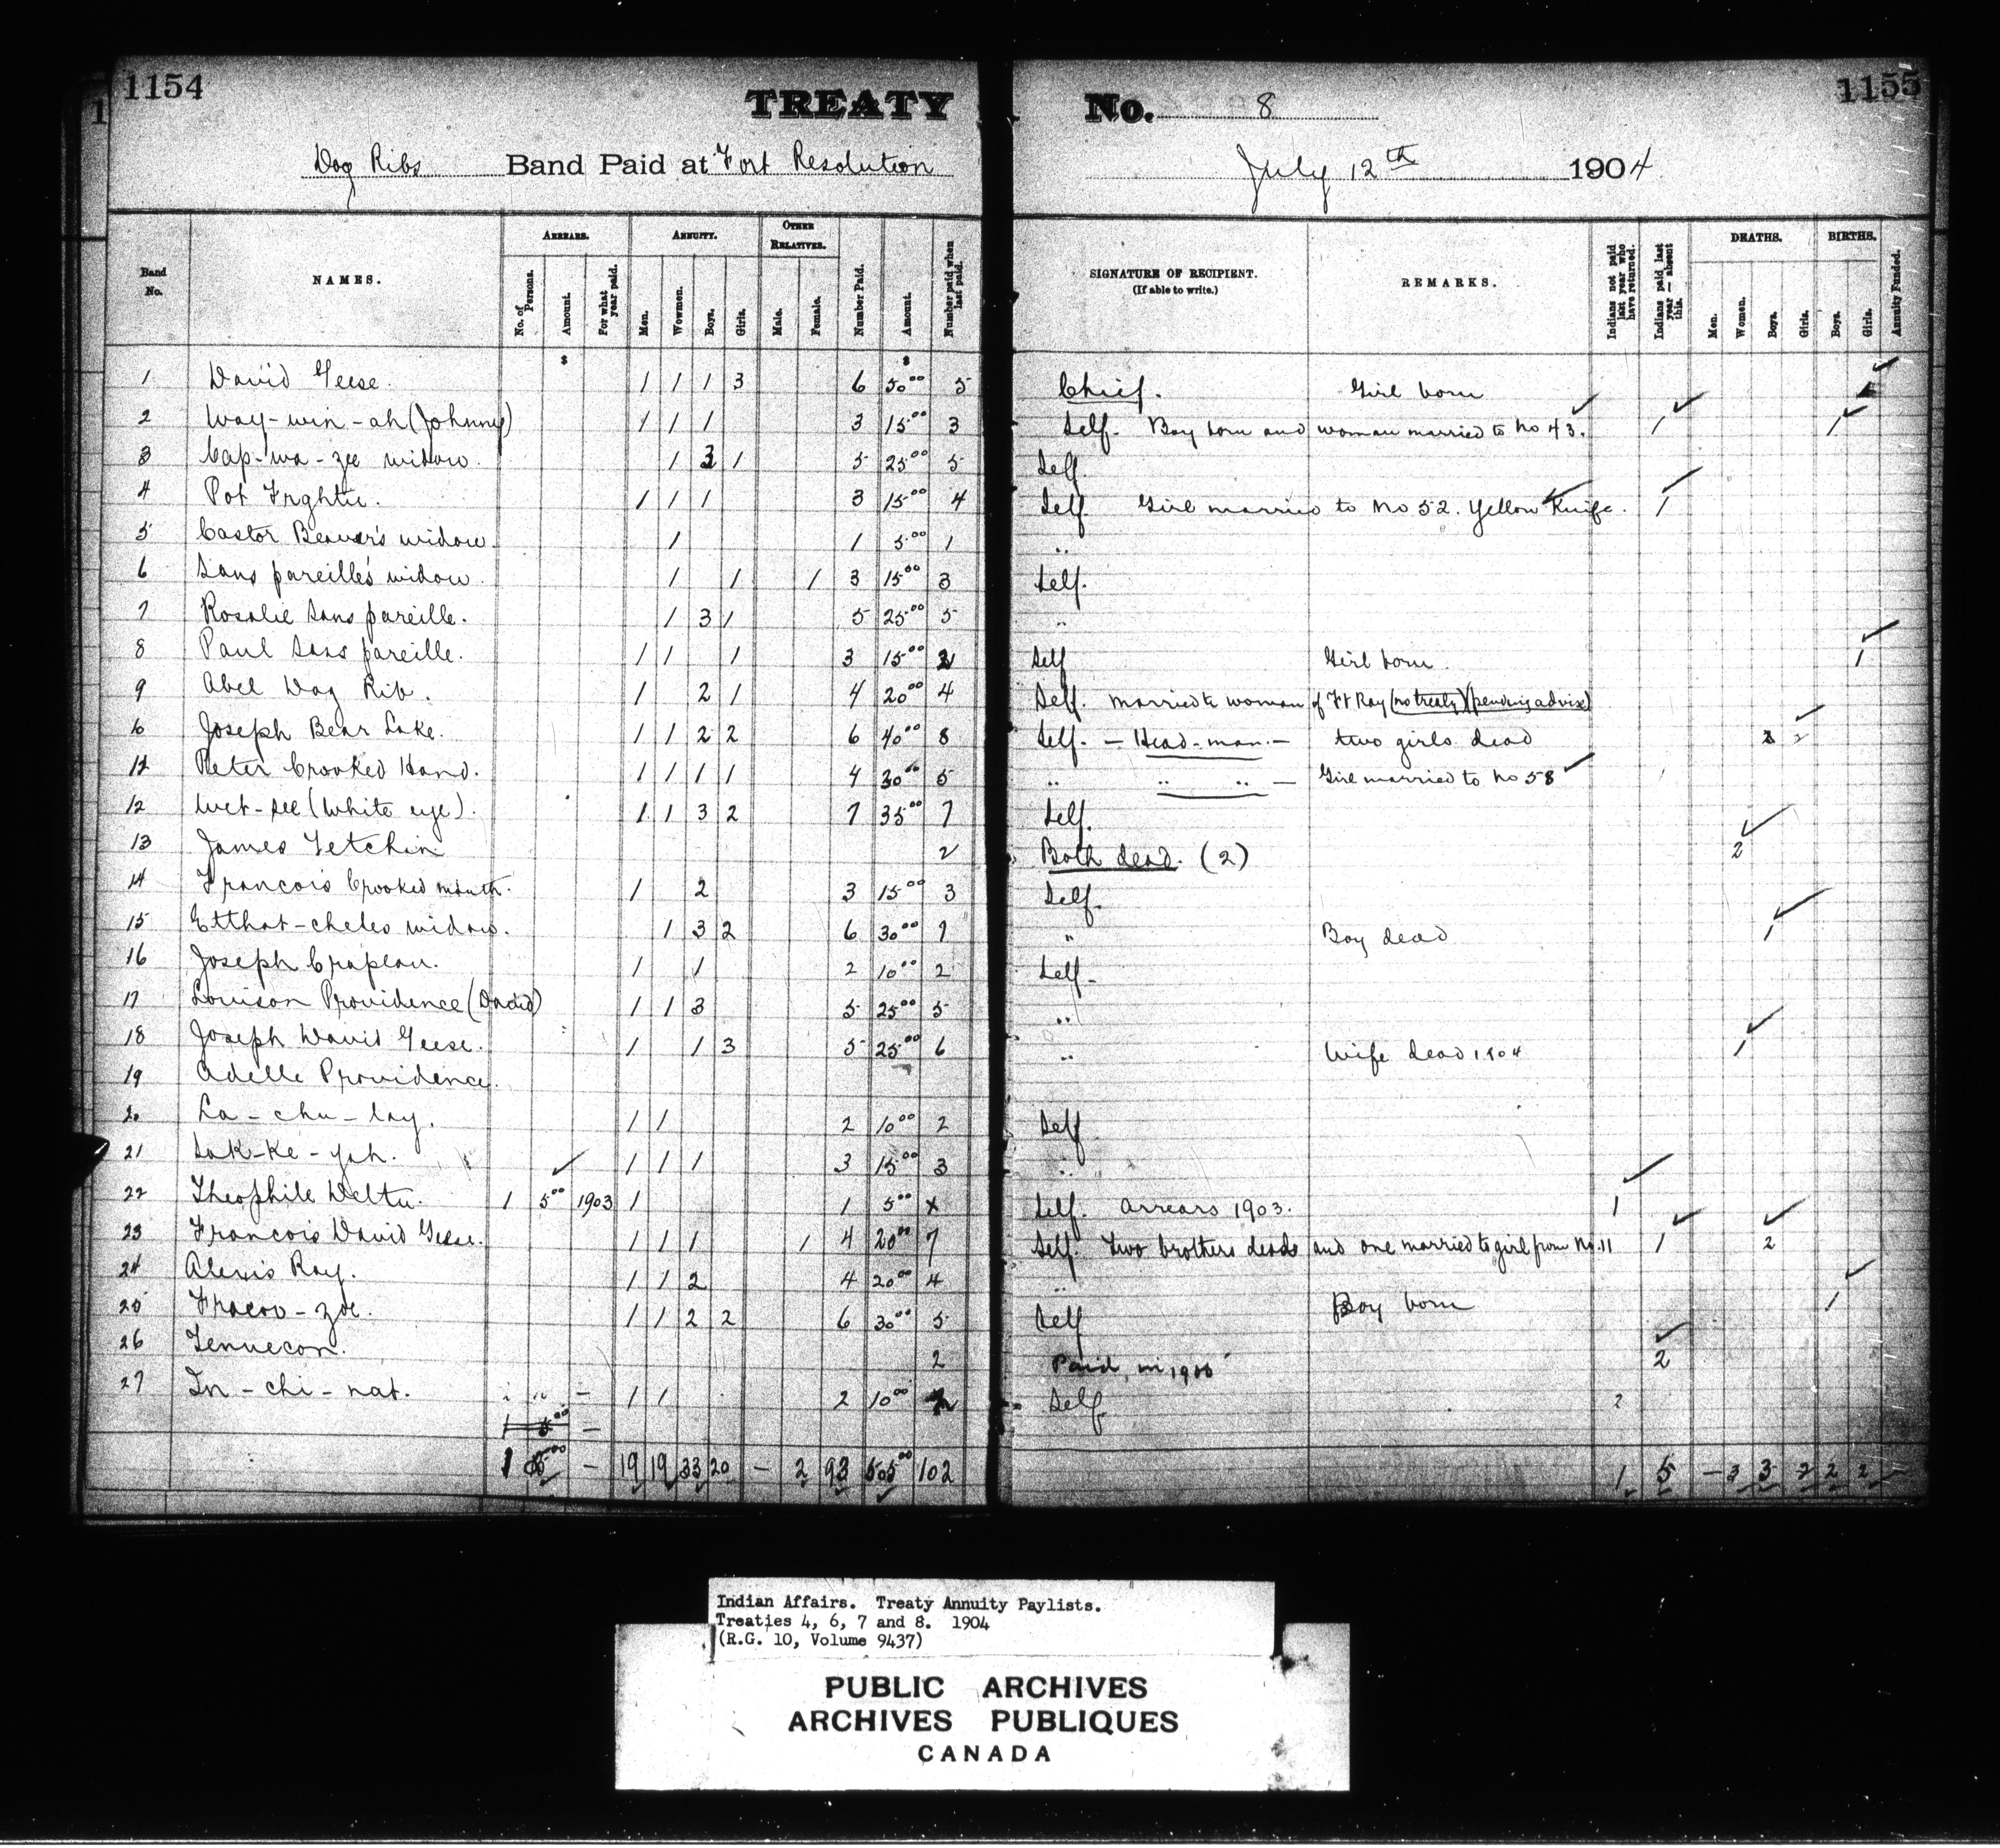 1154
TREATY No. 8
1155
Dog Ribs Band Paid at Fort Resolution July 12th 1904
Band No. NAMES. ARREARS. ANNUITY. OTHER RELATIVES. Number Paid. Amount. Number paid when last paid. SIGNATURE OF RECIPIENT. (If able to write.) REMARKS. Indians not paid last year who have returned. Indians paid last year — absent this. DEATHS. BIRTHS. Annuity Funded.
No. of Persons. Amount. For what year paid. Men. Wowmen. Boys. Girls. Male. Female. Men. Women. Boys. Girls. Boys. Girls.
$ $
1 David Geese. 1 1 1 3 6 50.00 5 Chief. Girl born
2 Way-win-ah (Johnny) 1 1 1 3 15.00 3 Self. Boy born and woman married to No 43. 1 1
3 Cap-wa-zee widow. 1 3 1 5 25.00 5 Self
4 Pot 1 1 1 3 15.00 4 Self Girl married to No 52. Yellow Knife. 1
5 Castor Beaver's widow. 1 1 5.00 1 "
6 Sans pareille's widow. 1 1 1 3 15.00 3 Self.
7 Rosalie Sans pareille. 1 3 1 5 25.00 5 "
8 Paul Sans pareille. 1 1 1 3 15.00 2 Self Girl born 1
9 Abel Dog Rib. 1 2 1 4 20.00 4 Self. married to woman of Ft Ray (no treaty) (pending advise)
10 Joseph Bear Lake. 1 1 2 2 6 40.00 8 Self. — Head-man. — two girls dead 2
11 Peter Crooked Hand. 1 1 1 1 4 30.00 5 " " " — Girl married to No 58
12 Wet-see (White eye). 1 1 3 2 7 35.00 7 Self.
13 James Tetchin 2 Both dead. (2) 2
14 Francois Crooked mouth. 1 2 3 15.00 3 Self.
15 Etthat-cheles widow. 1 3 2 6 30.00 7 " Boy dead 1
16 Joseph Crapeau. 1 1 2 10.00 2 Self-
17 Louison Providence (David) 1 1 3 5 25.00 5 "
18 Joseph David Geese. 1 1 3 5 25.00 6 " Wife dead 1904 1
19 Adelle Providence.
20 La-chu-lay. 1 1 2 10.00 2 Self
21 Sak-ke-yah. 1 1 1 3 15.00 3 "
22 Theophile 1 5.00 1903 1 1 5.00 x Self. Arrears 1903. 1
23 Francois David Geese. 1 1 1 1 4 20.00 7 Self. Two brothers dead and one married to girl from No. 11 1 2
24 Alexis Ray. 1 1 2 4 20.00 4 "
25 1 1 2 2 6 30.00 5 Self Boy born 1
26 Tennecon. 2 Paid in 1900 2
27 In-chi-nat. " " - 1 1 2 10.00 Self 2
1 5.00 -
1 5.00 - 19 19 33 20 - 2 93 505.00 102 1 5 - 3 3 2 2 2 -
Indian Affairs. Treaty Annuity Paylists.
Treaties 4, 6, 7 and 8. 1904
(R.G. 10, Volume 9437)
PUBLIC ARCHIVES
ARCHIVES PUBLIQUES
CANADA